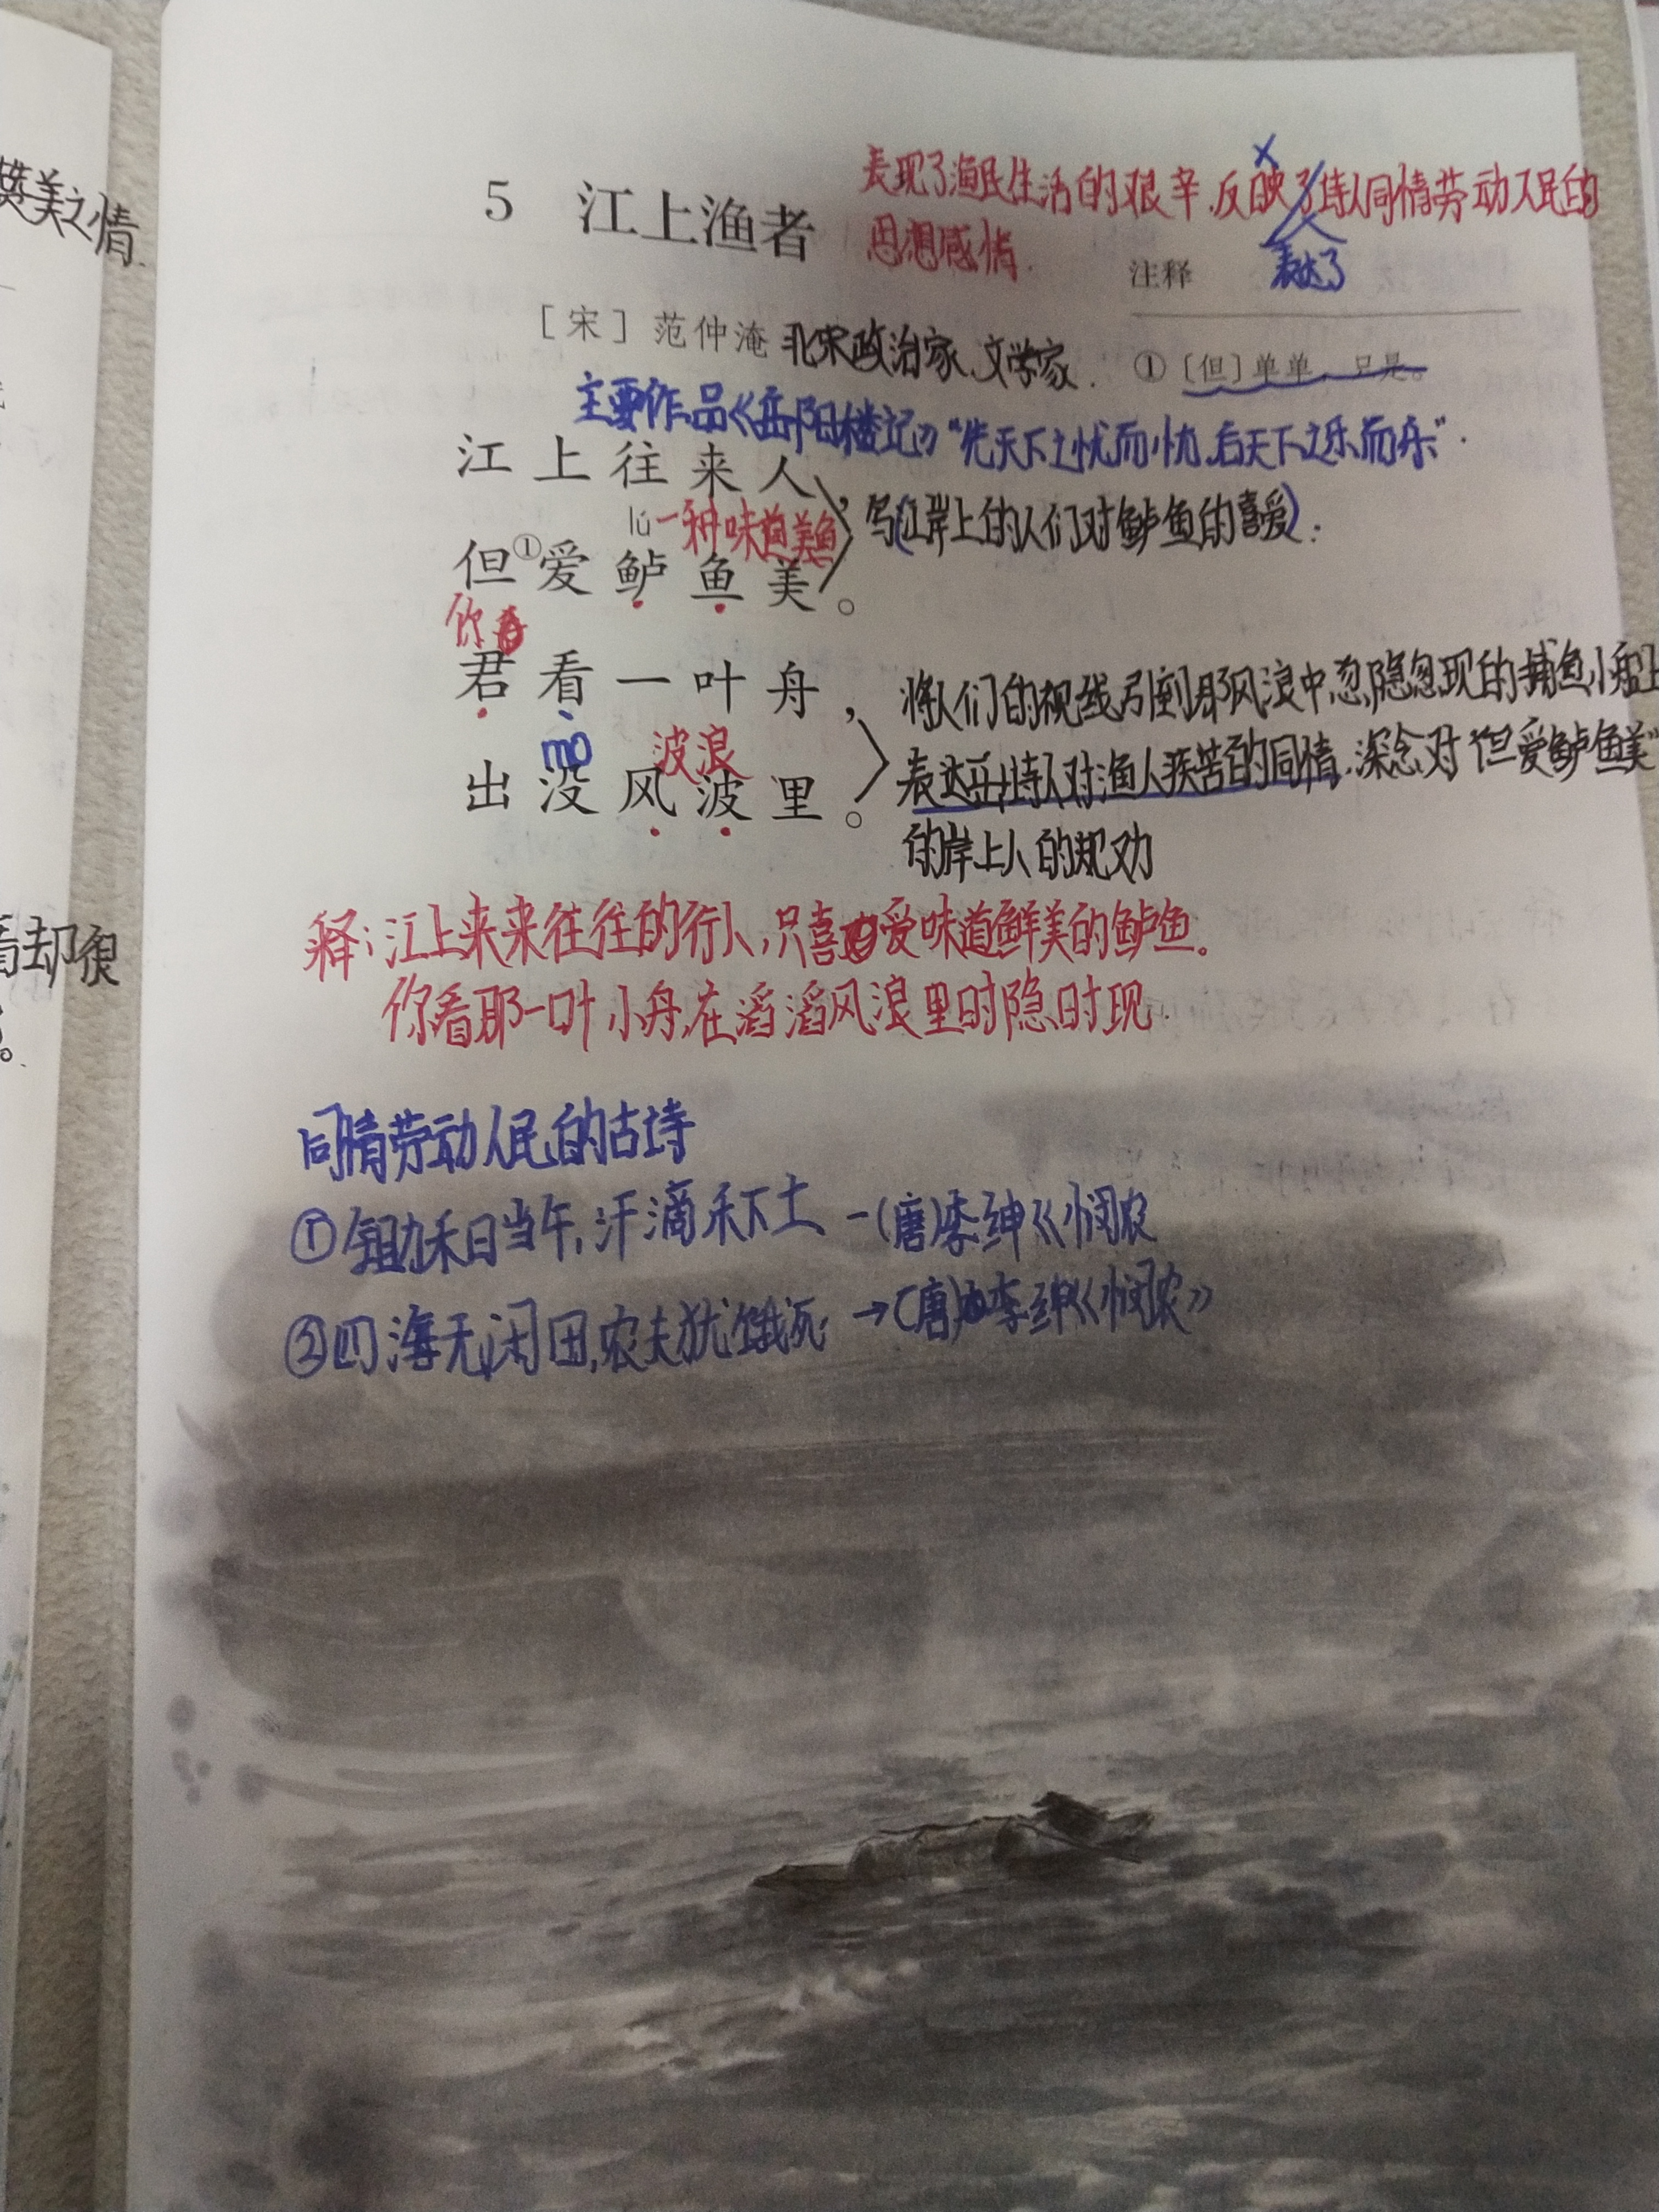 赞美之情.
看却很
5 江上渔者
表现了渔民生活的艰辛,反映了诗人同情劳动人民的
思想感情.
表达了
注释
[宋] 范仲淹 北宋政治家、文学家.
①〔但〕单单,只是。
主要作品《岳阳楼记》“先天下之忧而忧,后天下之乐而乐”.
江上往来人,
写(江岸上的人们对鲈鱼的喜爱).
lú 一种味道美鱼
但①爱鲈鱼美。
你
君看一叶舟,
将人们的视线引到那风浪中忽隐忽现的捕鱼小船上
mò 波浪
表达出诗人对渔人疾苦的同情.深念对“但爱鲈鱼美”
出没风波里。
的岸上人的规劝
释:江上来来往往的行人,只喜爱味道鲜美的鲈鱼。
你看那一叶小舟,在滔滔风浪里时隐时现.
同情劳动人民的古诗
①锄禾日当午,汗滴禾下土 -(唐)李绅《悯农
②四海无闲田,农夫犹饿死. →(唐)李绅《悯农》